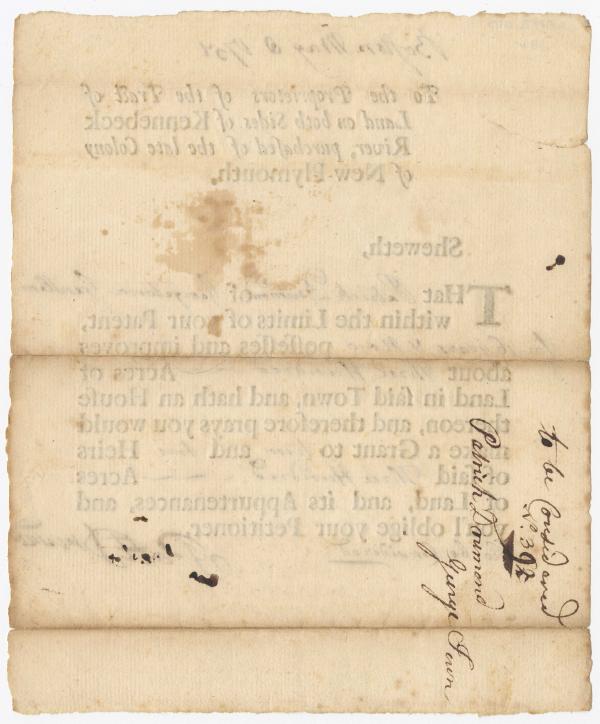 to be Considered
No. 39
Patrick Drummond
George Town
To the Proprietors of the Tract of
Land on both Sides of Kennebeck
River, purchased of the late Colony
of New-Plymouth.
Sheweth,
THat Patrick Drummond of Georgetown
within the Limits of your Patent,
possesses and improves
about Three Hundred Acres of
Land in said Town, and hath an House
thereon, and therefore prays you would
make a Grant to him and his Heirs
of said Three Hundred Acres
of Land, and its Appurtenances, and
you'l oblige your Petitioner,